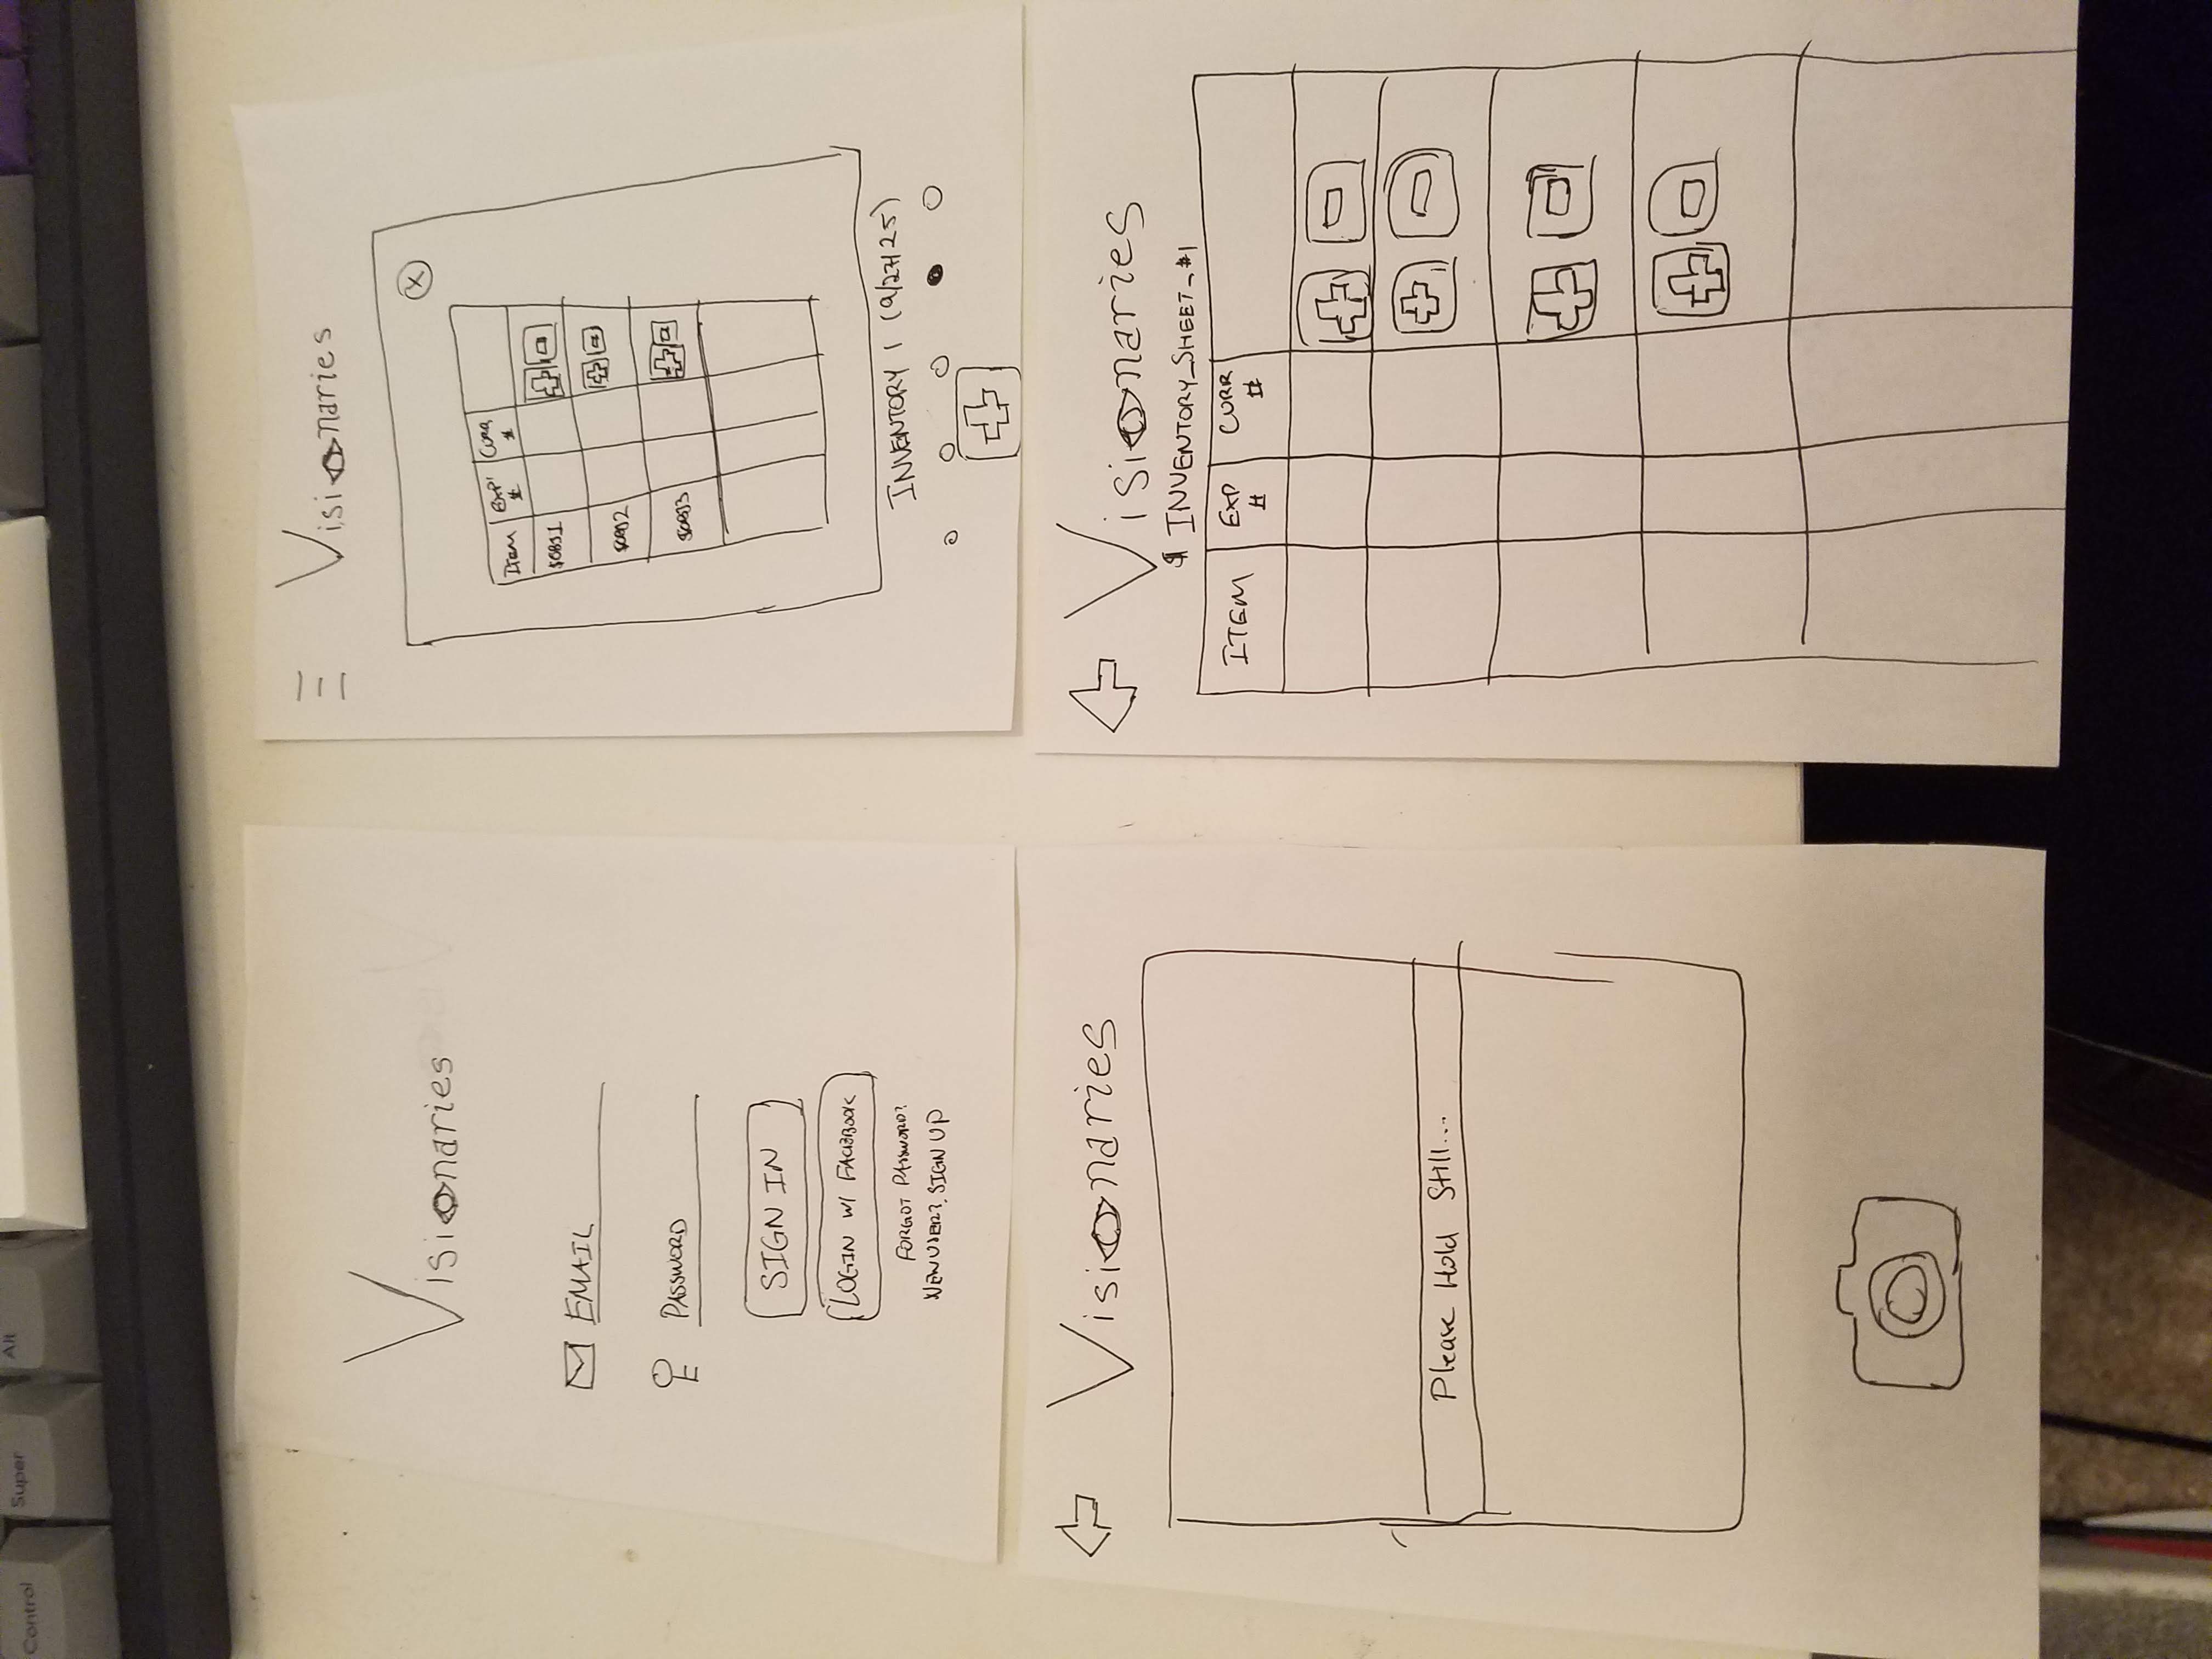 Control
Super
Alt
Visionaries
EMAIL
PASSWORD
SIGN IN
LOGIN W/ FACEBOOK
FORGOT PASSWORD?
NEW USER? SIGN UP
Visionaries
X
ITEM EXP # CURR #
$OBJ1
$OBJ2
$OBJ3
INVENTORY 1 (9/27/25)
Visionaries
Please Hold Still...
Visionaries
$ INVENTORY_SHEET_#1
ITEM EXP # CURR #